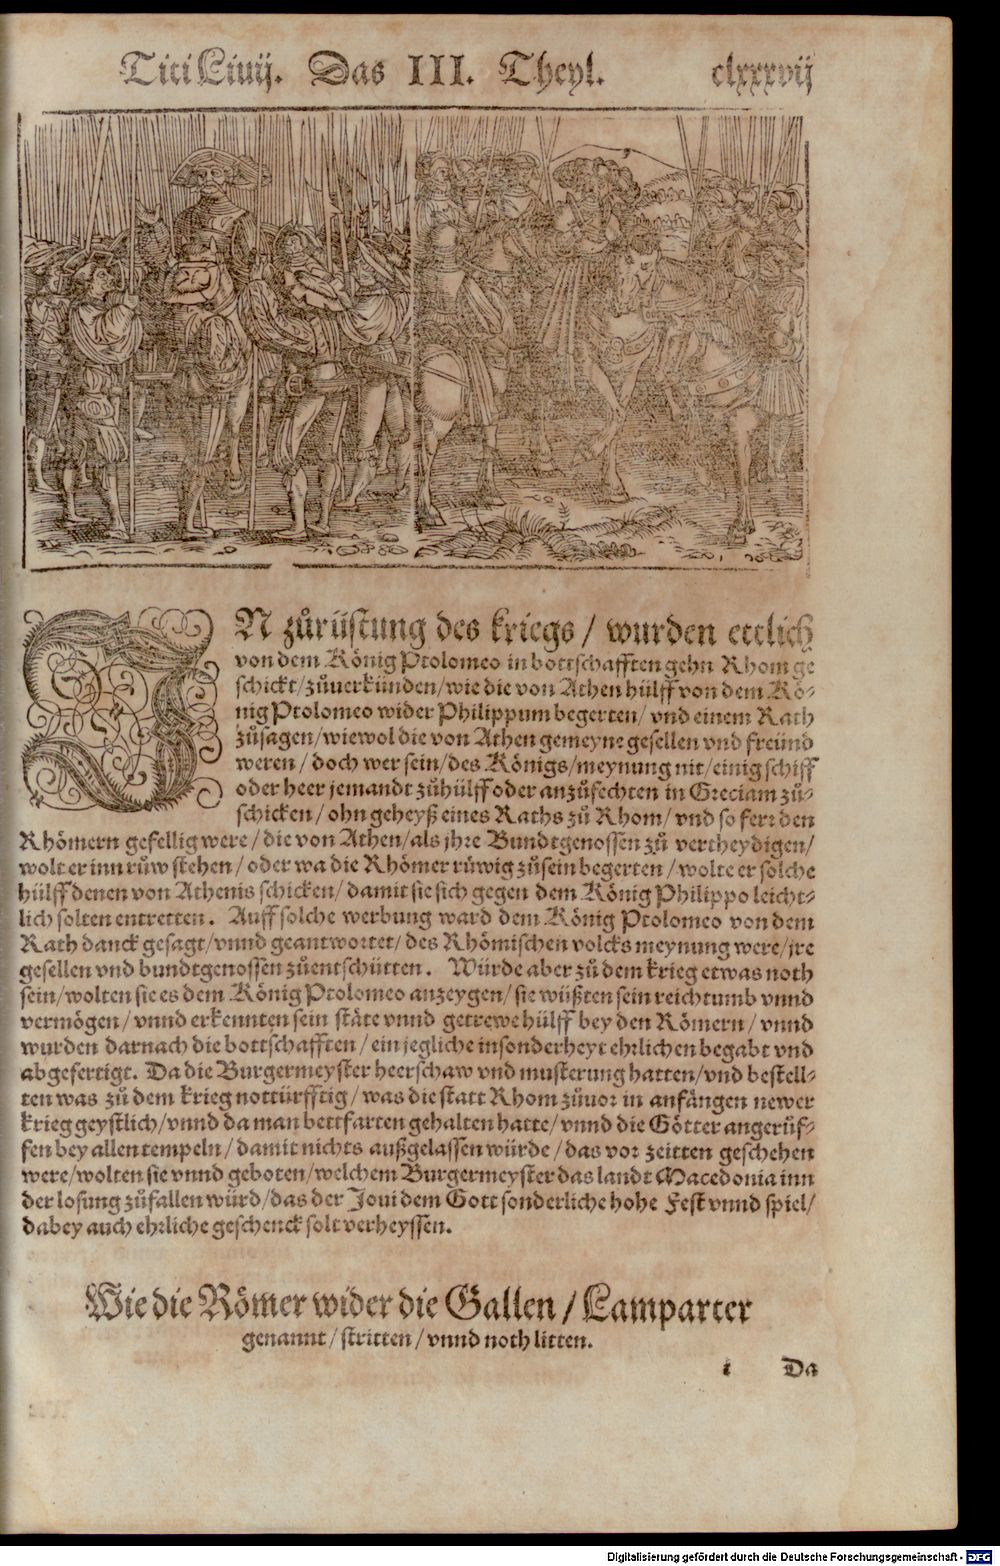 Titi Liuij. Das III. Theyl. clxxxvij
IN zůrüstung des kriegs / wurden ettlich
von dem König Ptolomeo in bottschafften gehn Rhom ge
schickt / zůuerkünden / wie die von Athen hülff von dem Kö-
nig Ptolomeo wider Philippum begerten / vnd einem Rath
zůsagen / wiewol die von Athen gemeyne gesellen vnd freünd
weren / doch wer sein / des Königs / meynung nit / einig schiff
oder heer jemandt zůhülff oder anzůfechten in Greciam zů-
schicken / ohn geheyß eines Raths zů Rhom / vnd so ferr den
Rhömern gefellig were / die von Athen / als jhre Bundtgenossen zů vertheydigen /
wolt er inn růw stehen / oder wa die Rhömer růwig zůsein begerten / wolte er solche
hülff denen von Athenis schicken / damit sie sich gegen dem König Philippo leicht-
lich solten entretten. Auff solche werbung ward dem König Ptolomeo von dem
Rath danck gesagt / vnnd geantwortet / des Rhömischen volcks meynung were / jre
gesellen vnd bundtgenossen zůentschütten. Würde aber zů dem krieg etwas noth
sein / wolten sie es dem König Ptolomeo anzeygen / sie wüßten sein reichtumb vnnd
vermögen / vnnd erkennten sein stäte vnnd getrewe hülff bey den Römern / vnnd
wurden darnach die bottschafften / ein jegliche insonderheyt ehrlichen begabt vnd
abgefertigt. Da die Burgermeyster heerschaw vnd musterung hatten / vnd bestell-
ten was zů dem krieg nottürfftig / was die statt Rhom zůuor in anfängen newer
krieg geystlich / vnnd da man bettfarten gehalten hatte / vnnd die Götter angerüf-
fen bey allen tempeln / damit nichts außgelassen würde / das vor zeitten geschehen
were / wolten sie vnnd geboten / welchem Burgermeyster das landt Macedonia inn
der losung zůfallen würd / das der Joui dem Gott sonderliche hohe Fest vnnd spiel /
dabey auch ehrliche geschenck solt verheyssen.
Wie die Römer wider die Gallen / Lamparter
genannt / stritten / vnnd noth litten.
i Da
Digitalisierung gefördert durch die Deutsche Forschungsgemeinschaft - DFG